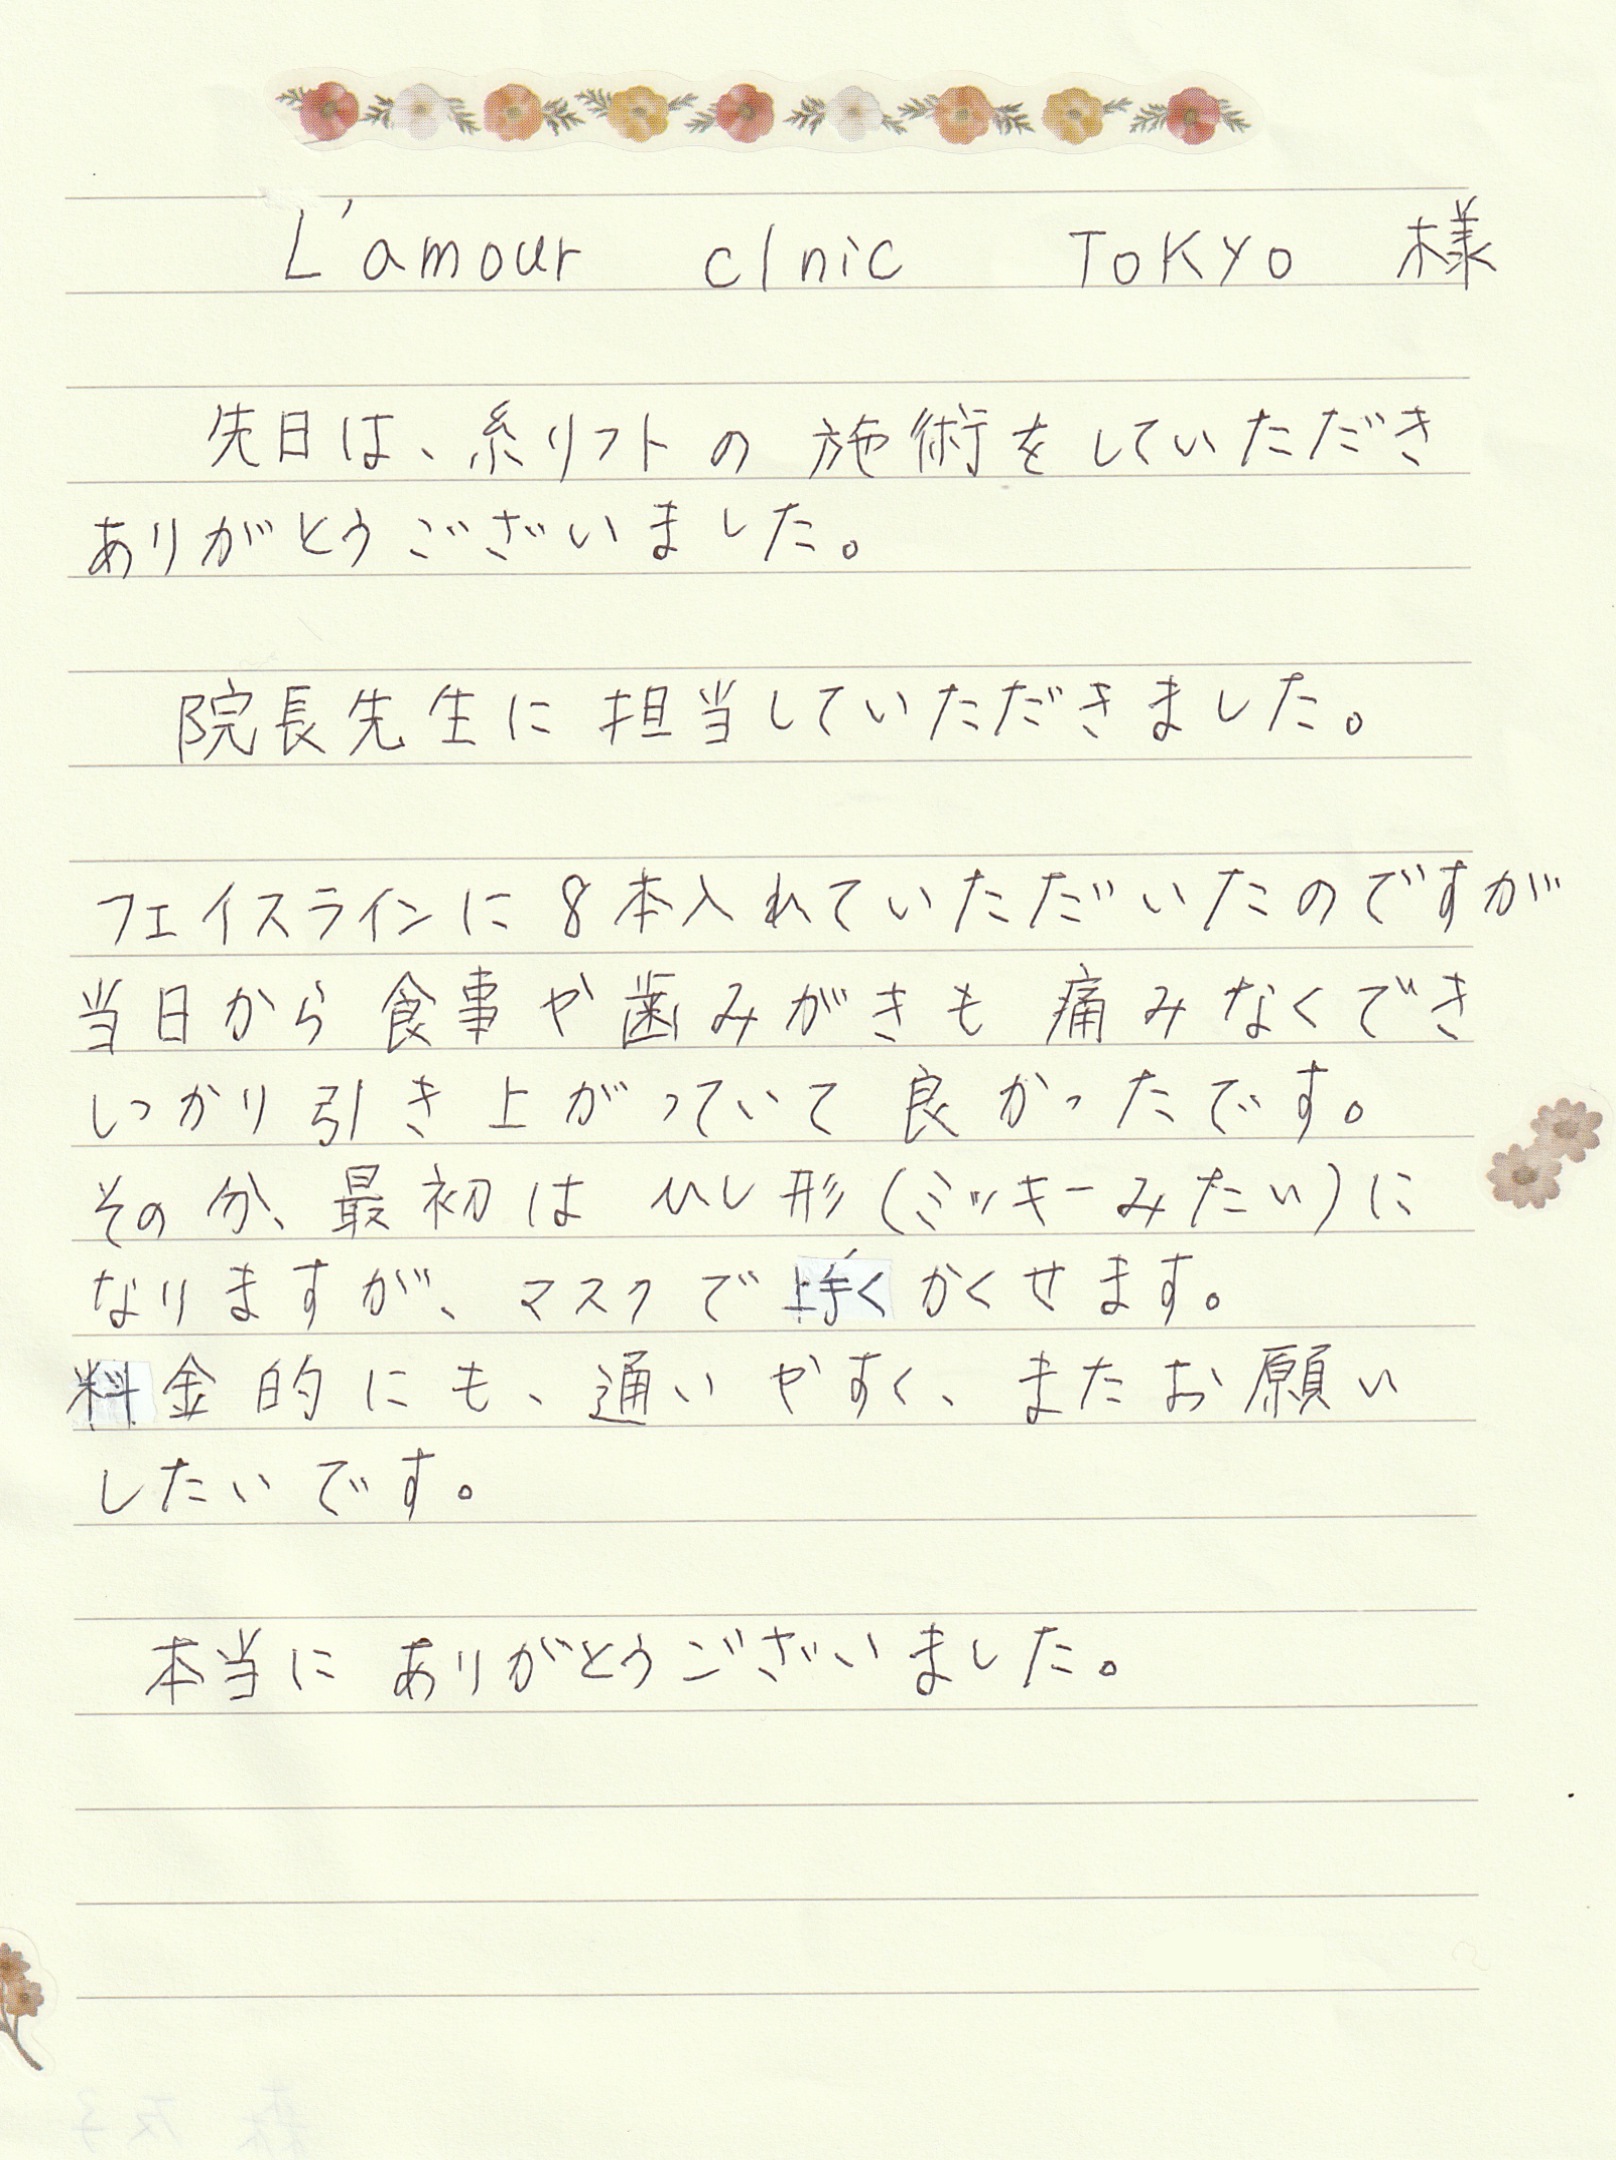 L'amour clnic ToKyo 様
先日は、糸リフトの施術をしていただき
ありがとうございました。
院長先生に担当していただきました。
フェイスラインに8本入れていただいたのですが
当日から食事や歯みがきも痛みなくでき
しっかり引き上がっていて良かったです。
その分、最初はひし形(ミッキーみたい)に
なりますが、マスクで上手くかくせます。
料金的にも、通いやすく、またお願い
したいです。
本当にありがとうございました。